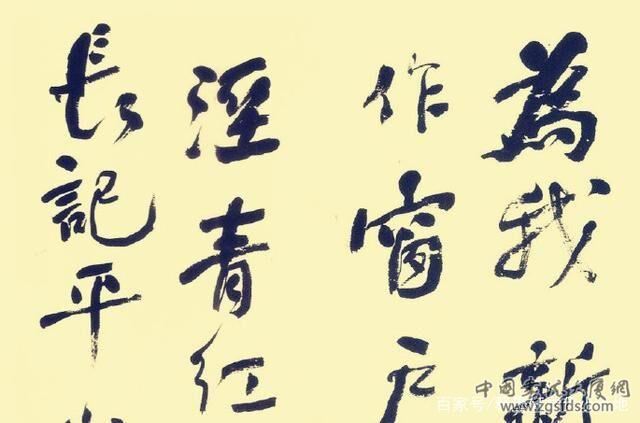 為我新
作窗户
溼青紅
長記平
中國書法大廈網
www.zgsfds.com
百家号/